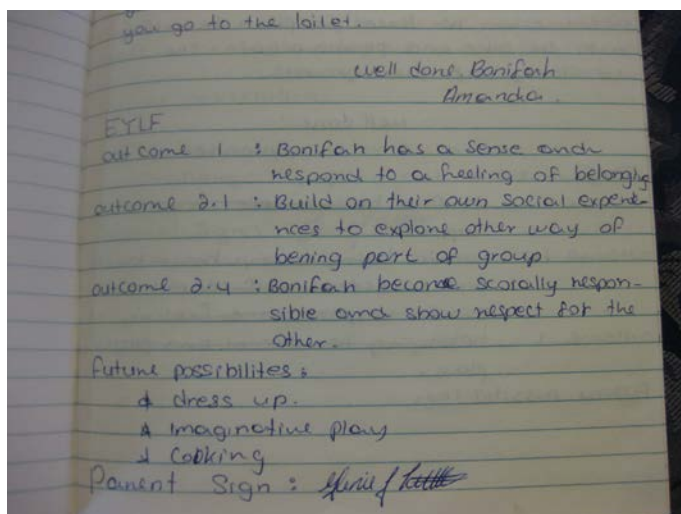 you go to the toilet.
well done Bonifah
Amanda.
EYLF
outcome 1 : Bonifah has a sense and
respond to a feeling of belonging
outcome 2.1 : Build on their own social experie-
nces to explore other way of
bening part of group.
outcome 2.4 : Bonifah become scorally respon-
sible and show respect for the
other.
future possibilites :
dress up.
Imaginative play
Cooking
Parent Sign :